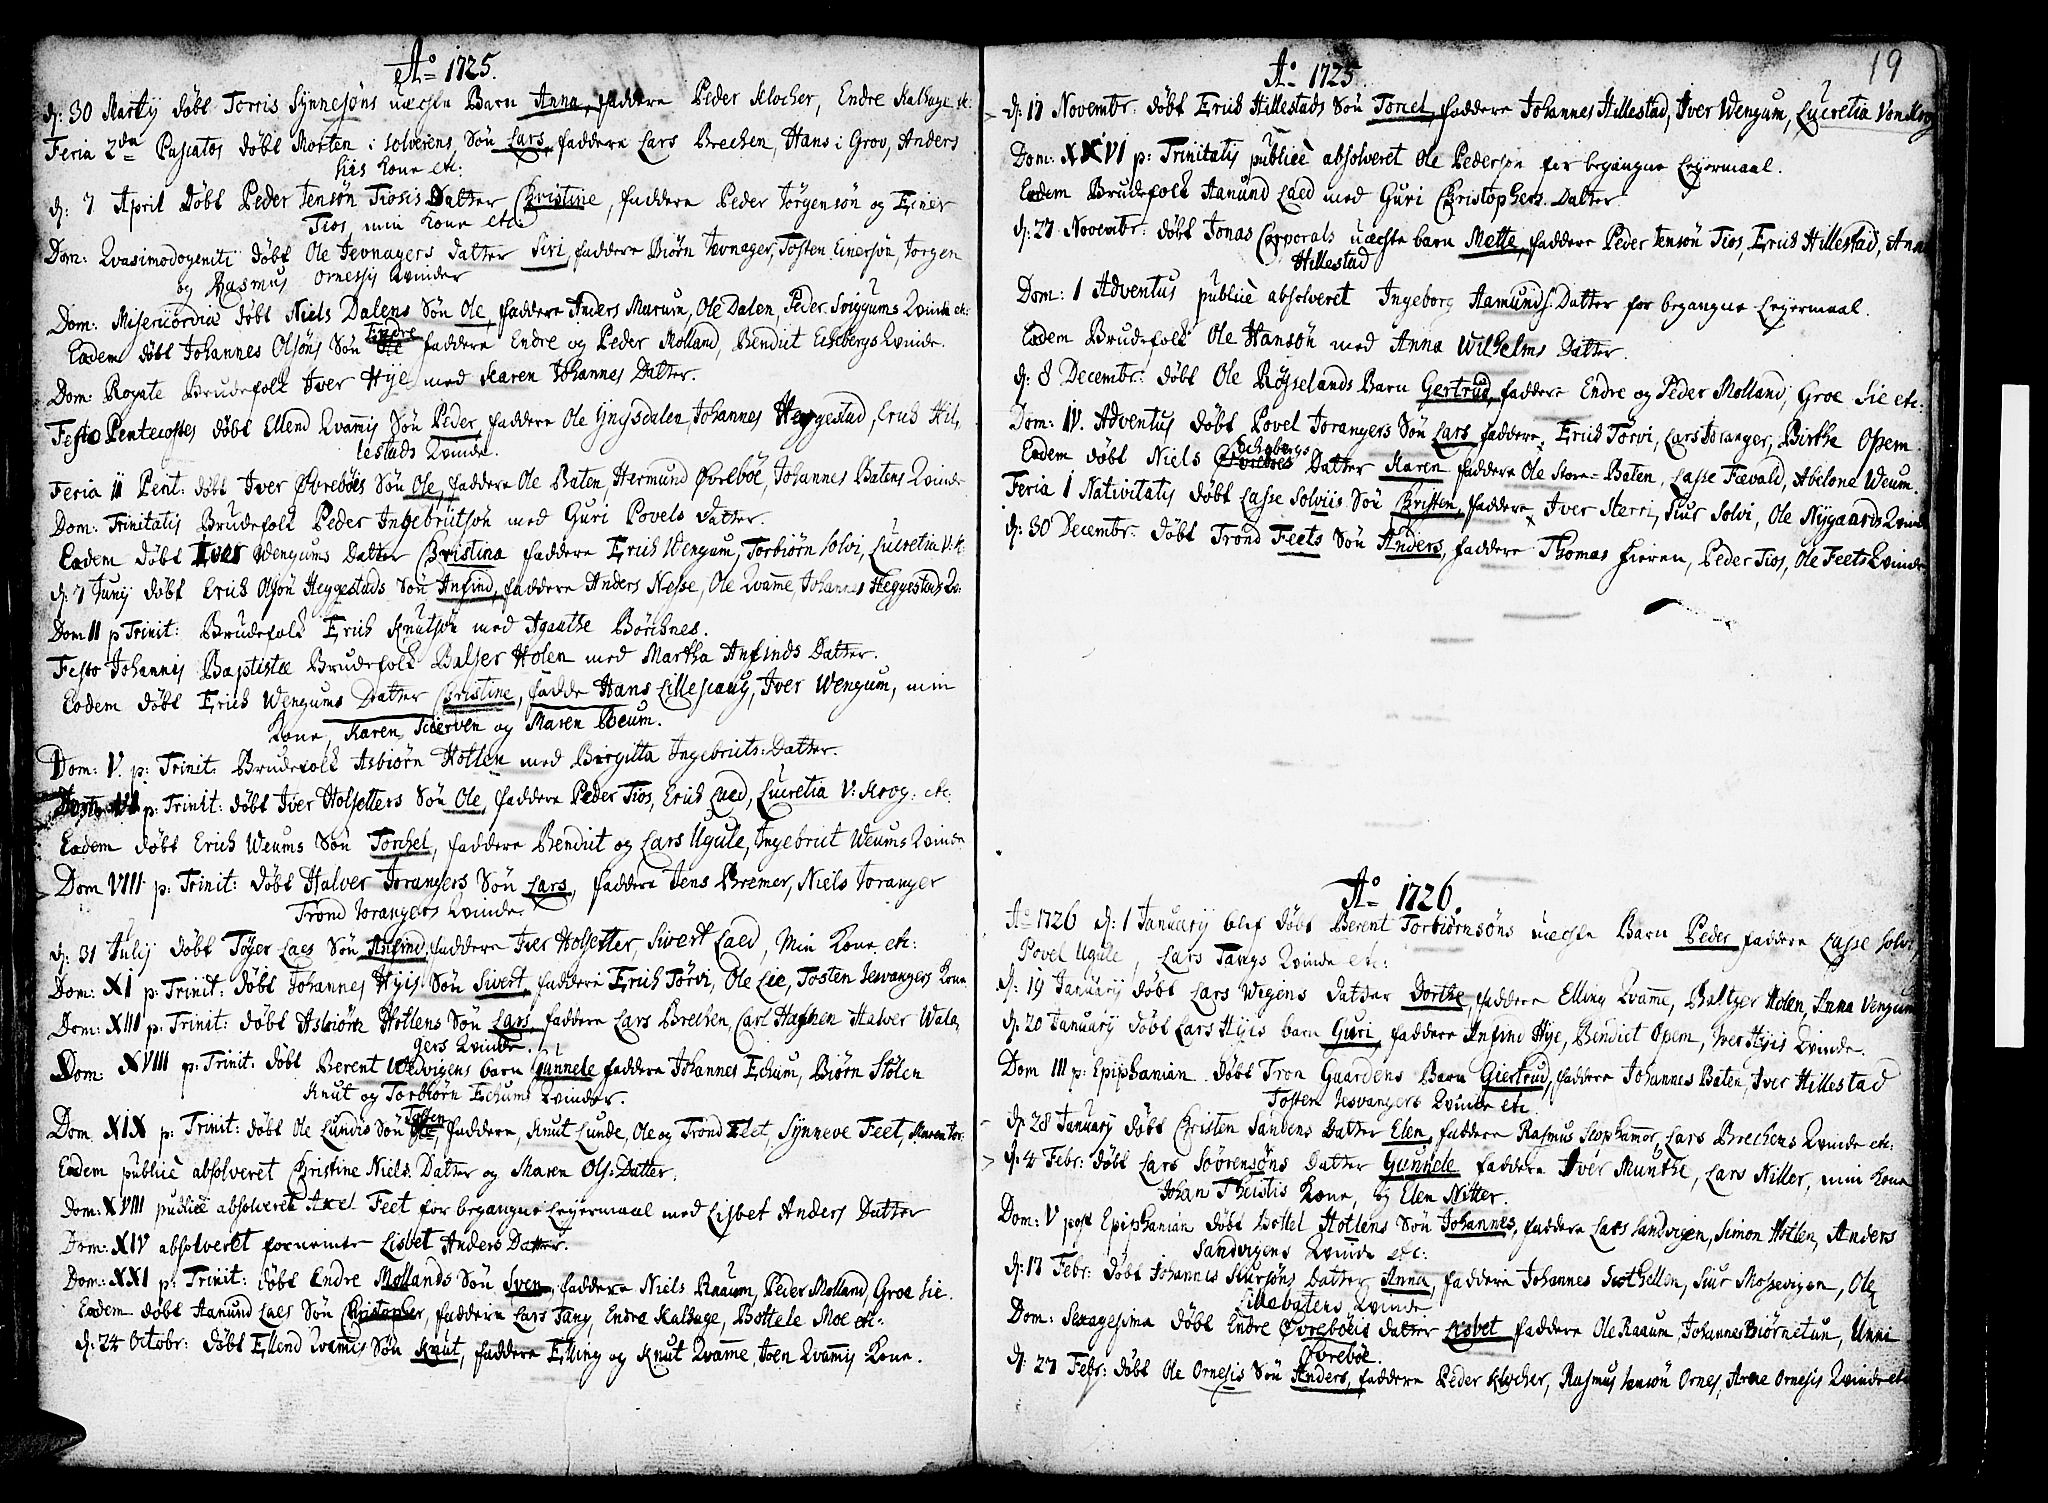 Ao 1725.
d: 30 Martij döbt Torris Synnesöns uæchte Barn Anna, faddere Peder Klocher, Endre Kalhage etc:
Feria 2da Paschatos döbt Morten i Solverens Sön Lars, faddere Lars Brechen, Hans i Grov, Anders
hiis Kone etc:
d: 7 April Döbt Peder Jensön Tiosis Datter Christine, faddere Peder Jörgensön og Einer
Tios, min Kone etc:
Dom: Qvasimodogeniti döbt Ole Jevnagers Datter Siri, faddere Biörn Jevnager, Tosten Einersön, Jorgen
og Rasmus Ornessis Qvinder
Dom: Misericordiæ döbt Niels Dalens Sön Ole, faddere Anders Marum, Ole Dalen, Peder Sviggums Qvinde etc:
Eodem döbt Johannes Olsöns Sön Endre faddere Endre og Peder Molland, Bendict Eichebergs Qvinde.
Dom: Rogate Brudefolk Iver Hÿe med Karen Johannes Datter.
Festo Pentecostes döbt Ellend Qvamis Sön Peder, faddere Ole Yngsdalen, Johannes Heggestad, Erich Hil,
lestads Qvinde.
Feria ii Pent: döbt Iver Övreböes Sön Ole, faddere Ole Baten, Hermund Övreböe, Johannes Batens Qvinde
Dom: Trinitatis Brudefolk Peder Ingebrictsön med Guri Povels Datter.
Eodem döbt Iver Wengums Datter Christina faddere Erich Wengum, Torbiörn Solvi, Lucretia V: K:
d: 7 Junij döbt Erich Olsön Heggestads Sön Anfind, faddere Anders Nesse, Ole Qvamme, Johannes Heggestads Qv:
Dom II p Trinit: Brudefolk Erich Knutsön med Agaathe Börchnes.
Festo Johannis Baptistæ Brudefolk Balser Holen med Martha Anfinds Datter.
Eodem döbt Erich Wengums Datter Christine, fadde Hans Lillescaug, Iver Wengum, min
Kone, Karen Skierven og Maren Weum.
Dom: V. p: Trinit: Brudefolk Asbiörn Hotlen med Birgitta Ingebricts: Datter.
Dom: VI p: Trinit: döbt Iver Holsetters Sön Ole, faddere Peder Tios, Erich Laed, Lucretia V: Krog: etc:
Eodem döbt Erich Weums Sön Torchel, faddere Bendict og Lars Ugule, Ingebrict Weums Qvinde
Dom VIII p: Trinit: döbt Halver Jorangers Sön Lars, faddere Jens Bremer, Niels Joranger
Trond Jorangers Qvinde.
d: 31 Julij döbt Töger Laes Sön Anfind, faddere Iver Holsetter, Sivert Laed, Min Kone etc:
Dom: XI p: Trinit: döbt Johannes Hÿis Sön Sivert, faddere Erich Törvi, Ole Lie, Tosten Jesvangers Kone
Dom: XIII p: Trinit: döbt Asbiörn Hotlens Sön Lars, faddere Lars Brechen, Carl Haschen Halver Wala,
gers Qvinde.
Dom: XVIII p: Trinit: döbt Berent Wedvigens barn Gunnele faddere Johannes Echum, Biörn Stölen
Knut og Torbiörn Echums Qvinder.
Dom XIX p: Trinit: döbt Ole Lundis Sön Tosten, faddere, Knut Lunde, Ole og Trond Feet, Synneve Feet, Maren Tor:
Eodem publicè absolveret Christine Niels: Datter og Maren Ols: Datter.
Dom: XVIII publicè absolveret Axel Feet for begangne Leyermaal med Lisbet Anders Datter
Dom: XIV absolveret fornemte Lisbet Anders Datter.
Dom: XXI p: Trinit: döbt Endre Mollands Sön Sven, faddere Niels Raaum, Peder Molland, Groe Lie.
Eodem döbt Aamund Laes Sön Christopher, faddere Lars Tang, Endre Kalhage, Bottele Moe etc:
d: 24 Octobr: döbt Ellend Qvamis Sön Knut, faddere Elling og Knut Qvamme, Joen Qvamis Kone.
19
Ao 1725
d: 17 Novembr: döbt Erich Hillestads Sön Torcel, faddere Johannes Hillestad, Iver Wengum, Lucretia Von Krog
Dom: XXVI p: Trinitatis publicè absolveret Ole Pedersön for begangne Leyermaal.
Eodem Brudefolk Aamund Laed med Guri Christophers Datter
d: 27 Novembr: döbt Jonas Corporals uæchte barn Mette, faddere Peder Jensön Tios, Erich Hillestad, Anna
Hillestad
Dom: 1 Adventus publicè absolveret Ingeborg Aamunds: Datter for begangne Leyermaal.
Eodem Brudefolk Ole Hansön med Anna Wilhelms Datter.
d: 8 Decembr: döbt Ole Röysselands Barn Gertrud, faddere Endre og Peder Molland, Groe Lie etc:
Dom: IV. Adventus döbt Povel Jorangers Sön Lars faddere, Erich Törvi, Lars Joranger, Birthe Opem.
Eodem döbt Niels Datter Karen faddere Ole Store-Baten, Lasse Fævald, Abelone Weum.
Feria 1 Nativitatis döbt Lasse Solviis Sön Christen, faddere, Iver Sterri, Siur Solvi, Ole Nygaards Qvinde
d: 30 Decembr: döbt Trond Feets Sön Anders, faddere Thomas Eieren, Peder Tios, Ole Feets Qvinde
Ao 1726.
Ao 1726 d: 1 Januarij blef döbt Berent Torbiörnsöns uæchte Barn Peder faddere Lasse Solvi,
Povel Ugule, Lars Tangs Qvinde etc:
d: 19 Januarij döbt Lars Wigens Datter Dorthe, faddere Elling Qvamme, Baltzer Holen, Anna Vengum
d: 20 Januarij döbt Lars Hÿis barn Guri, faddere Anfind Hÿe, Bendict Opem, Iver Hÿis Qvinde.
Dom III p: Epiphanian döbt Tron Guardens Barn Giertrud, faddere Johannes Baten, Iver Hillestad
Tosten Jesvangers Qvinde etc.
d: 28 Januarij döbt Christen Sandens Datter Elen, faddere Rasmus Scophammer, Lars Brechens Qvinde etc:
d: 4 Febr: döbt Lars Söörensöns Datter Gunnele faddere Iver Munthe, Lars Nitter, min Kone
Johan Theistis Kone, og Elen Nitter.
Dom: V post Epiphanian döbt Bottel Hotlens Sön Johannes, faddere Lars Sandvigen, Simon Hotlen, Anders
Sandvigens Qvinde etc:
d: 17 Febr: döbt Johannes Siursöns Datter Anna, faddere Johannes Scothellen, Siur Mossevigen, Ole
Lillebatens Qvinde
Dom: Sexagesima döbt Endre Övreböeis datter Lisbet faddere Ole Raaum, Johannes Biörnetun, Unni
Övreböe.
d: 27 Febr: döbt Ole Ornesis Sön Anders, faddere Peder Klocher, Rasmus Jensön Ornes, Arne Ornesis Qvinde etc